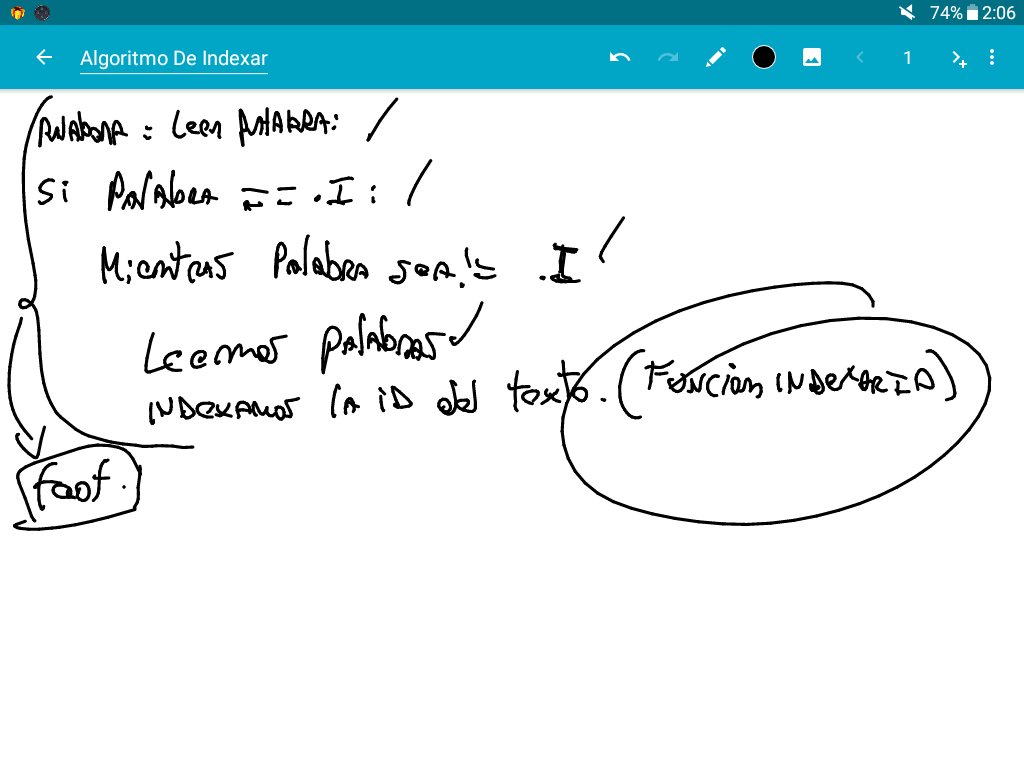 74% 2:06
Algoritmo De Indexar
1
PALAbRA = Leer PALAbRA:
Si PALAbRA == .I:
MientrAS PAlAbRA seA != .I
Leemos PALAbrAS
INDexAmos lA iD del texto. (Funcion INDexarID)
feof.